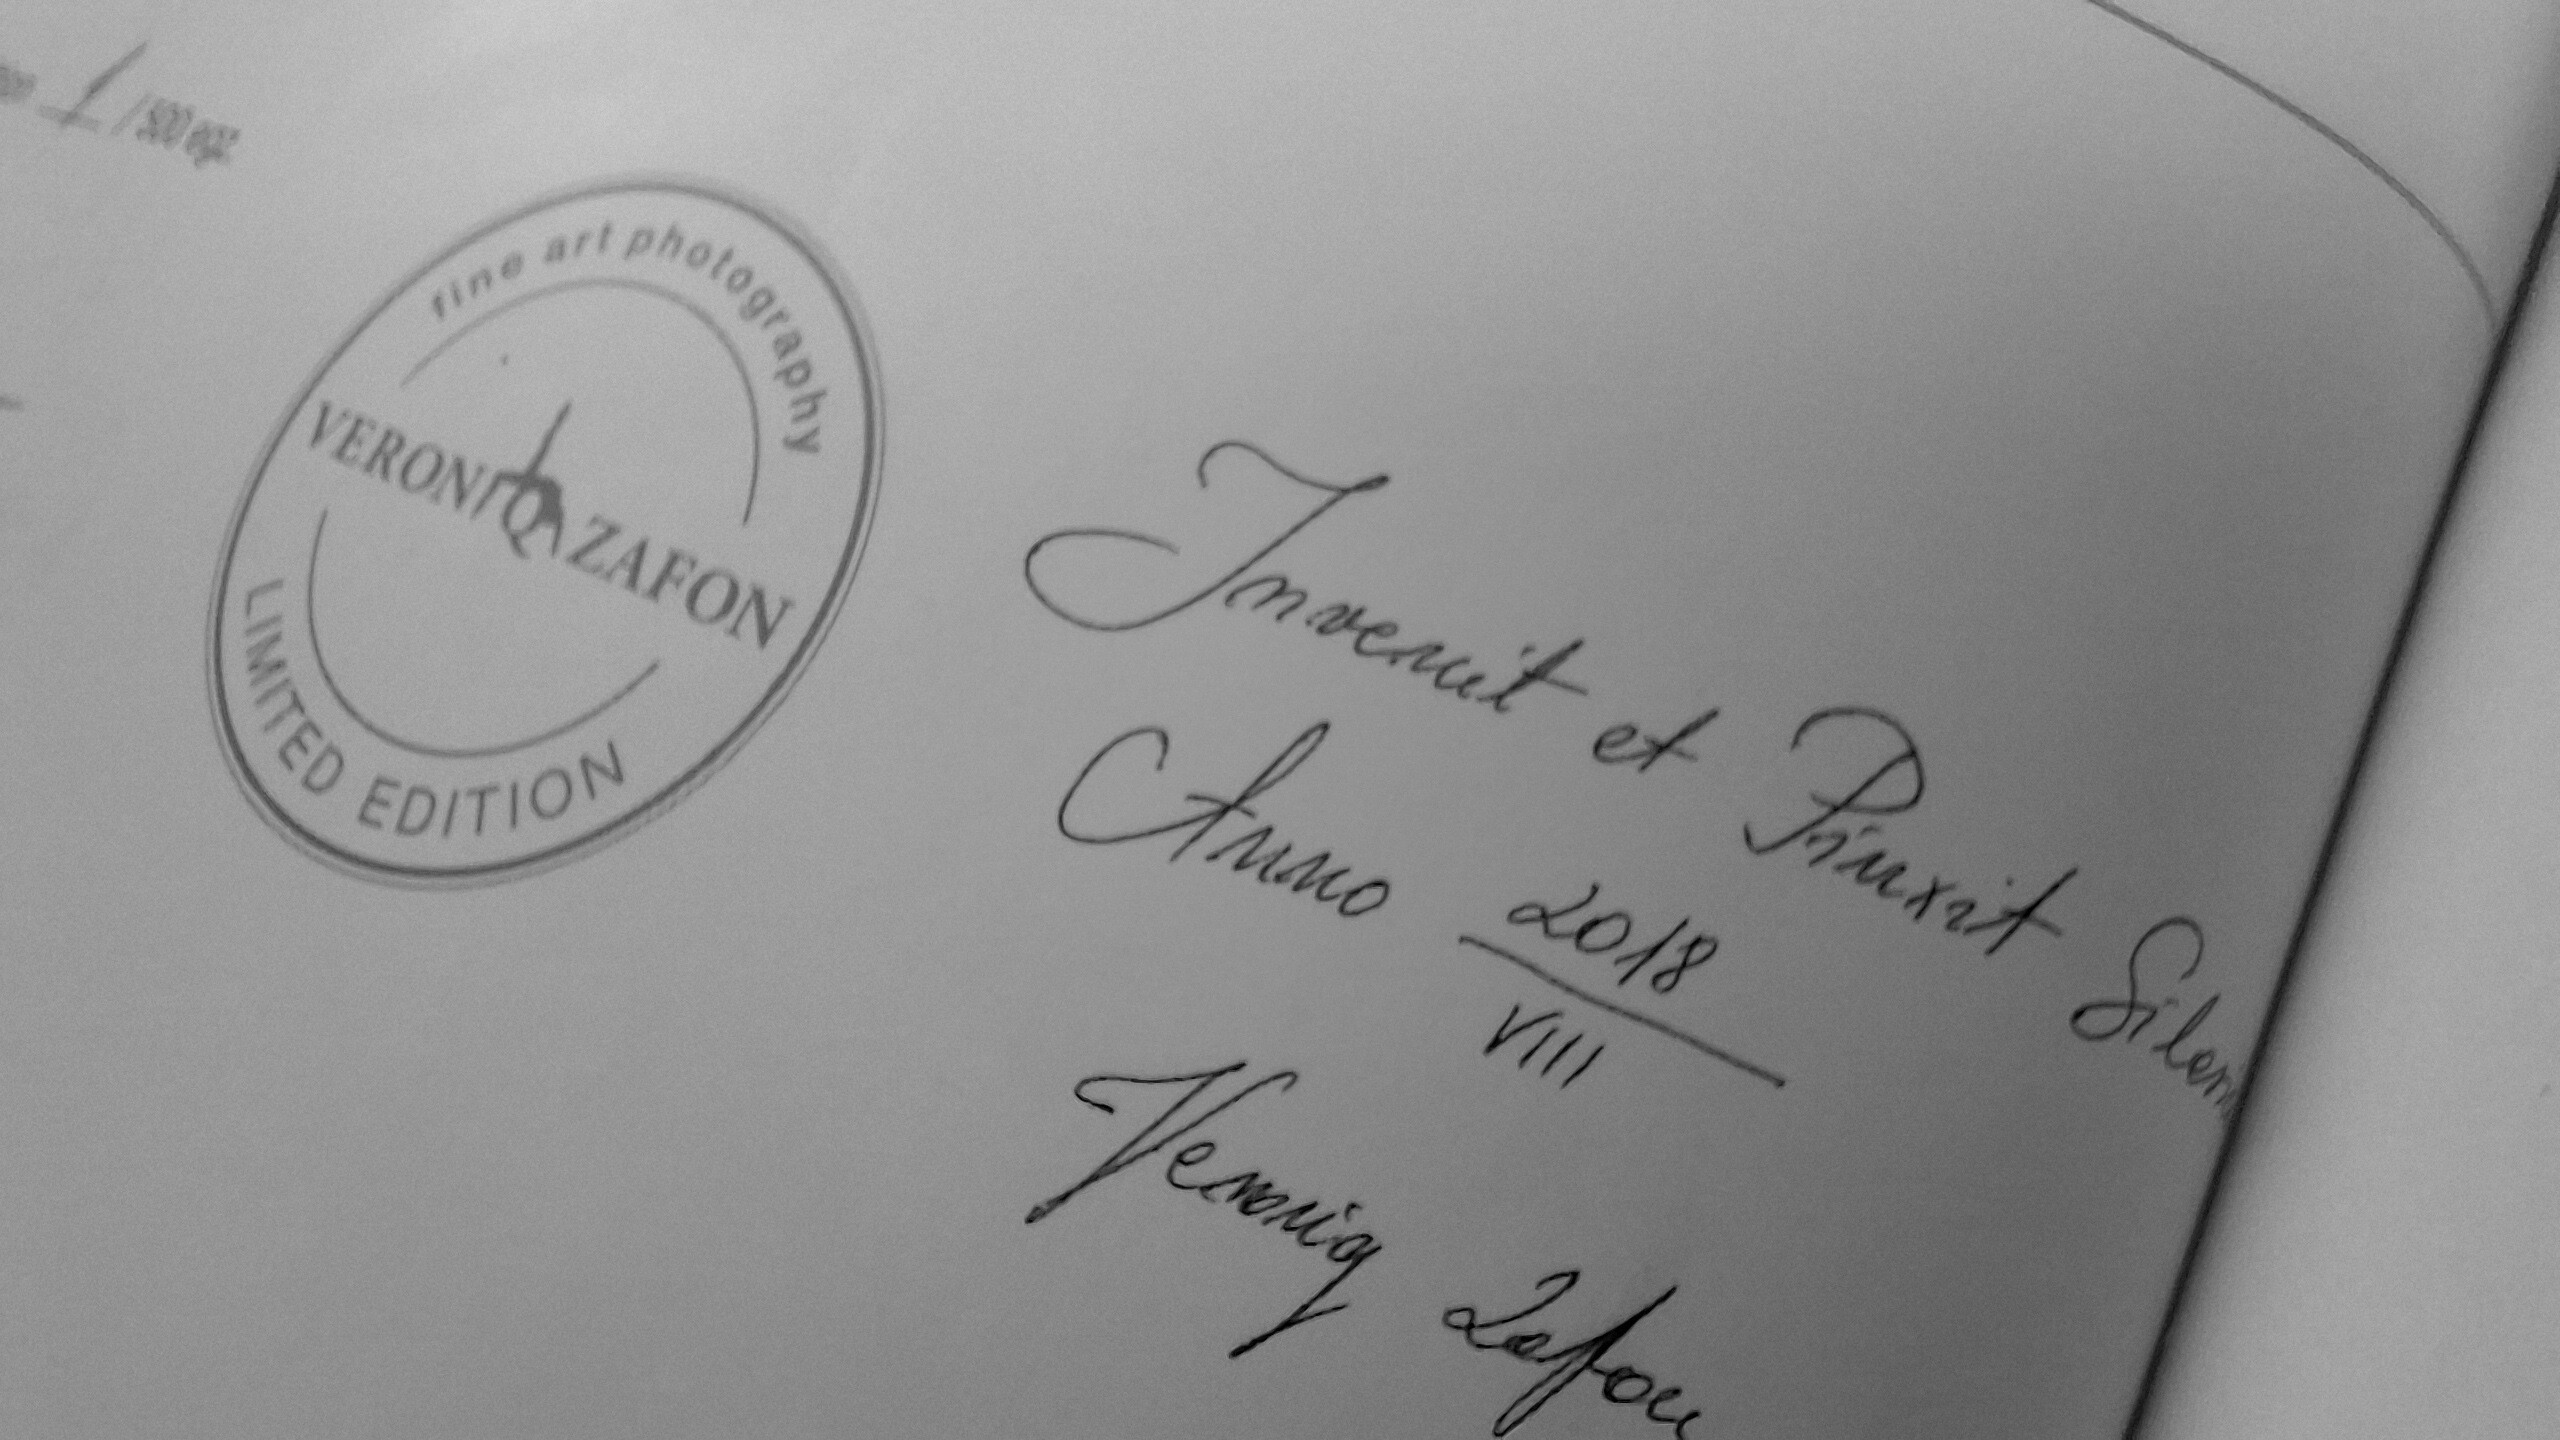 1 / 500 egz.
fine art photography
VERONIQ ZAFON
LIMITED EDITION
Invenit et Pinxit
Anno 2018
VIII
Veroniq Zafon